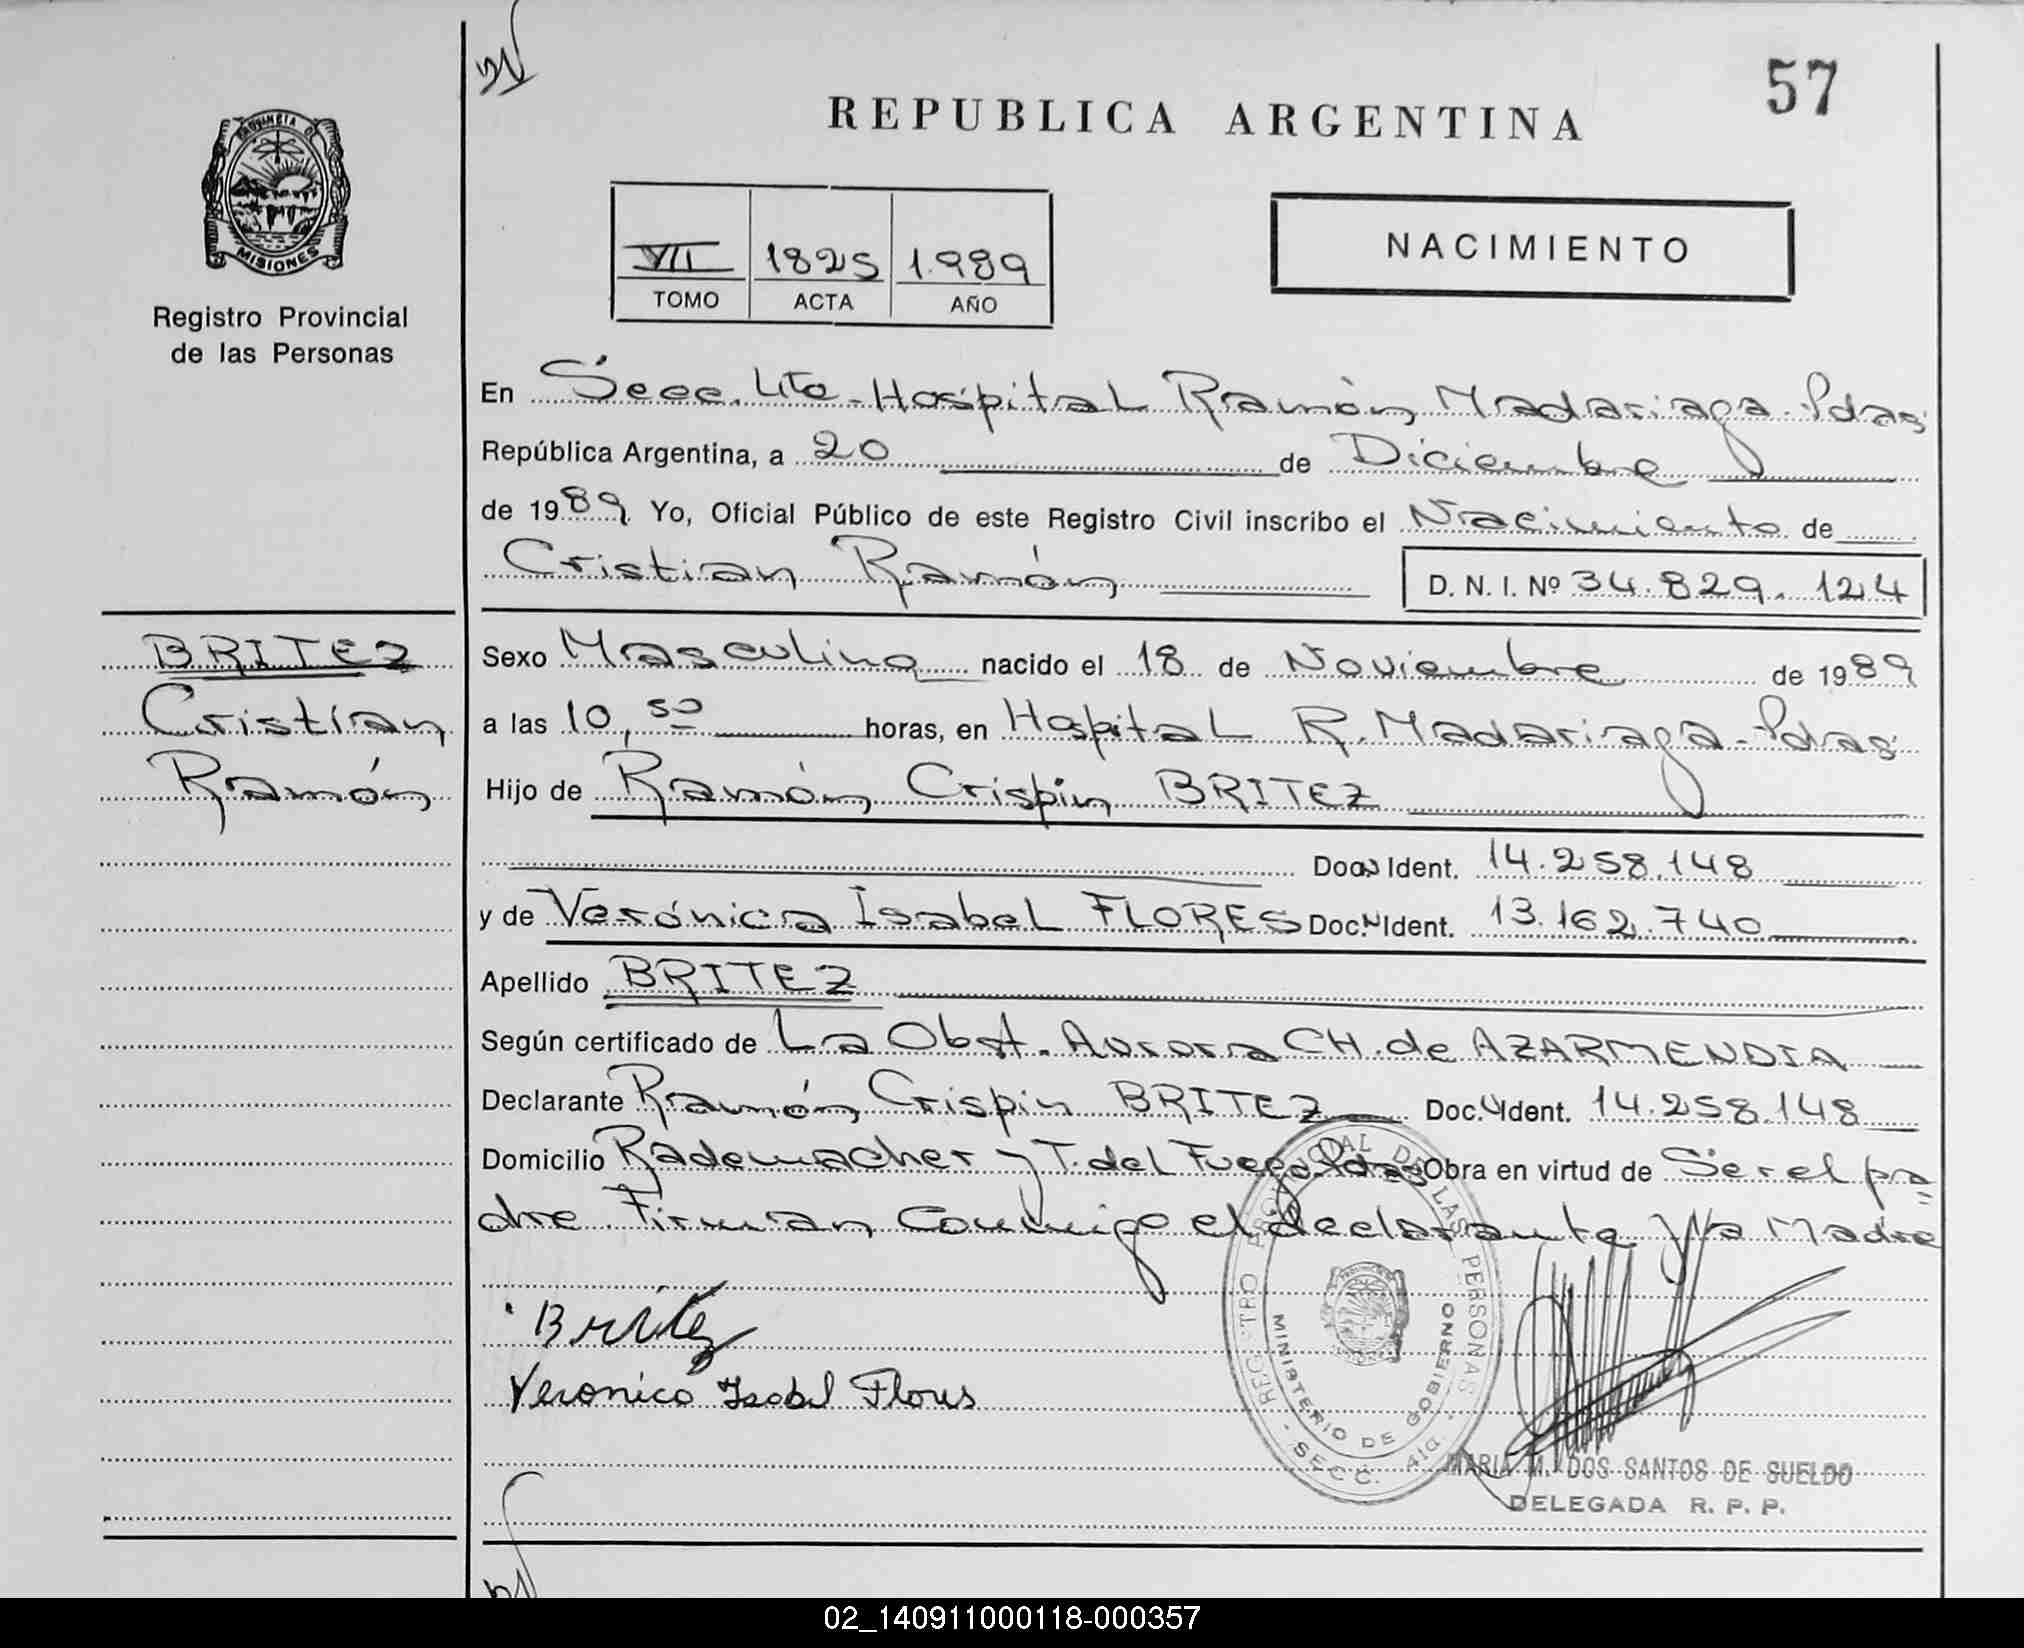 57
REPUBLICA ARGENTINA
PROVINCIA D
MISIONES
Registro Provincial
de las Personas
VII 1825 1.989
TOMO ACTA AÑO
NACIMIENTO
En Secc. 4ta - Hospital Ramón Madariaga - Pdas
República Argentina, a 20 de Diciembre
de 1989 Yo, Oficial Público de este Registro Civil inscribo el Nacimiento de
Cristian Ramón D. N. I. Nº 34.829.124
BRITEZ
Cristian
Ramón
Sexo Masculino nacido el 18 de Noviembre de 1989
a las 10,50 horas, en Hospital R. Madariaga - Pdas
Hijo de Ramón Crispin BRITEZ
Doc. Ident. 14.258.148
y de Verónica Isabel FLORES Doc. Ident. 13.162.740
Apellido BRITEZ
Según certificado de La Obst. Aurora CH. de AZARMENDIA
Declarante Ramón Crispin BRITEZ Doc. Ident. 14.258.148
Domicilio Rademacher y T. del Fuego. Pdas Obra en virtud de Ser el pa-
dre. Firman Conmigo el declarante y la Madre
Britez
Veronica Isabel Flores
REGISTRO PROVINCIAL DE LAS PERSONAS
MINISTERIO DE GOBIERNO
- SECC. 4ta.
MARIA M. DOS SANTOS DE SUELDO
DELEGADA R. P. P.
02_140911000118-000357